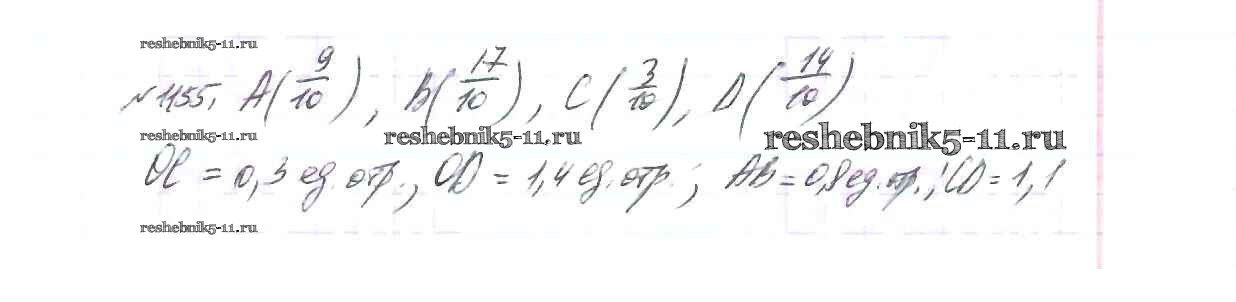 reshebnik5-11.ru
№1155. A(9/10), B(17/10), C(3/10), D(14/10)
reshebnik5-11.ru reshebnik5-11.ru reshebnik5-11.ru
OC = 0,3 ед. отр.; OD = 1,4 ед. отр.; AB = 0,8 ед. отр.; CD = 1,1
reshebnik5-11.ru